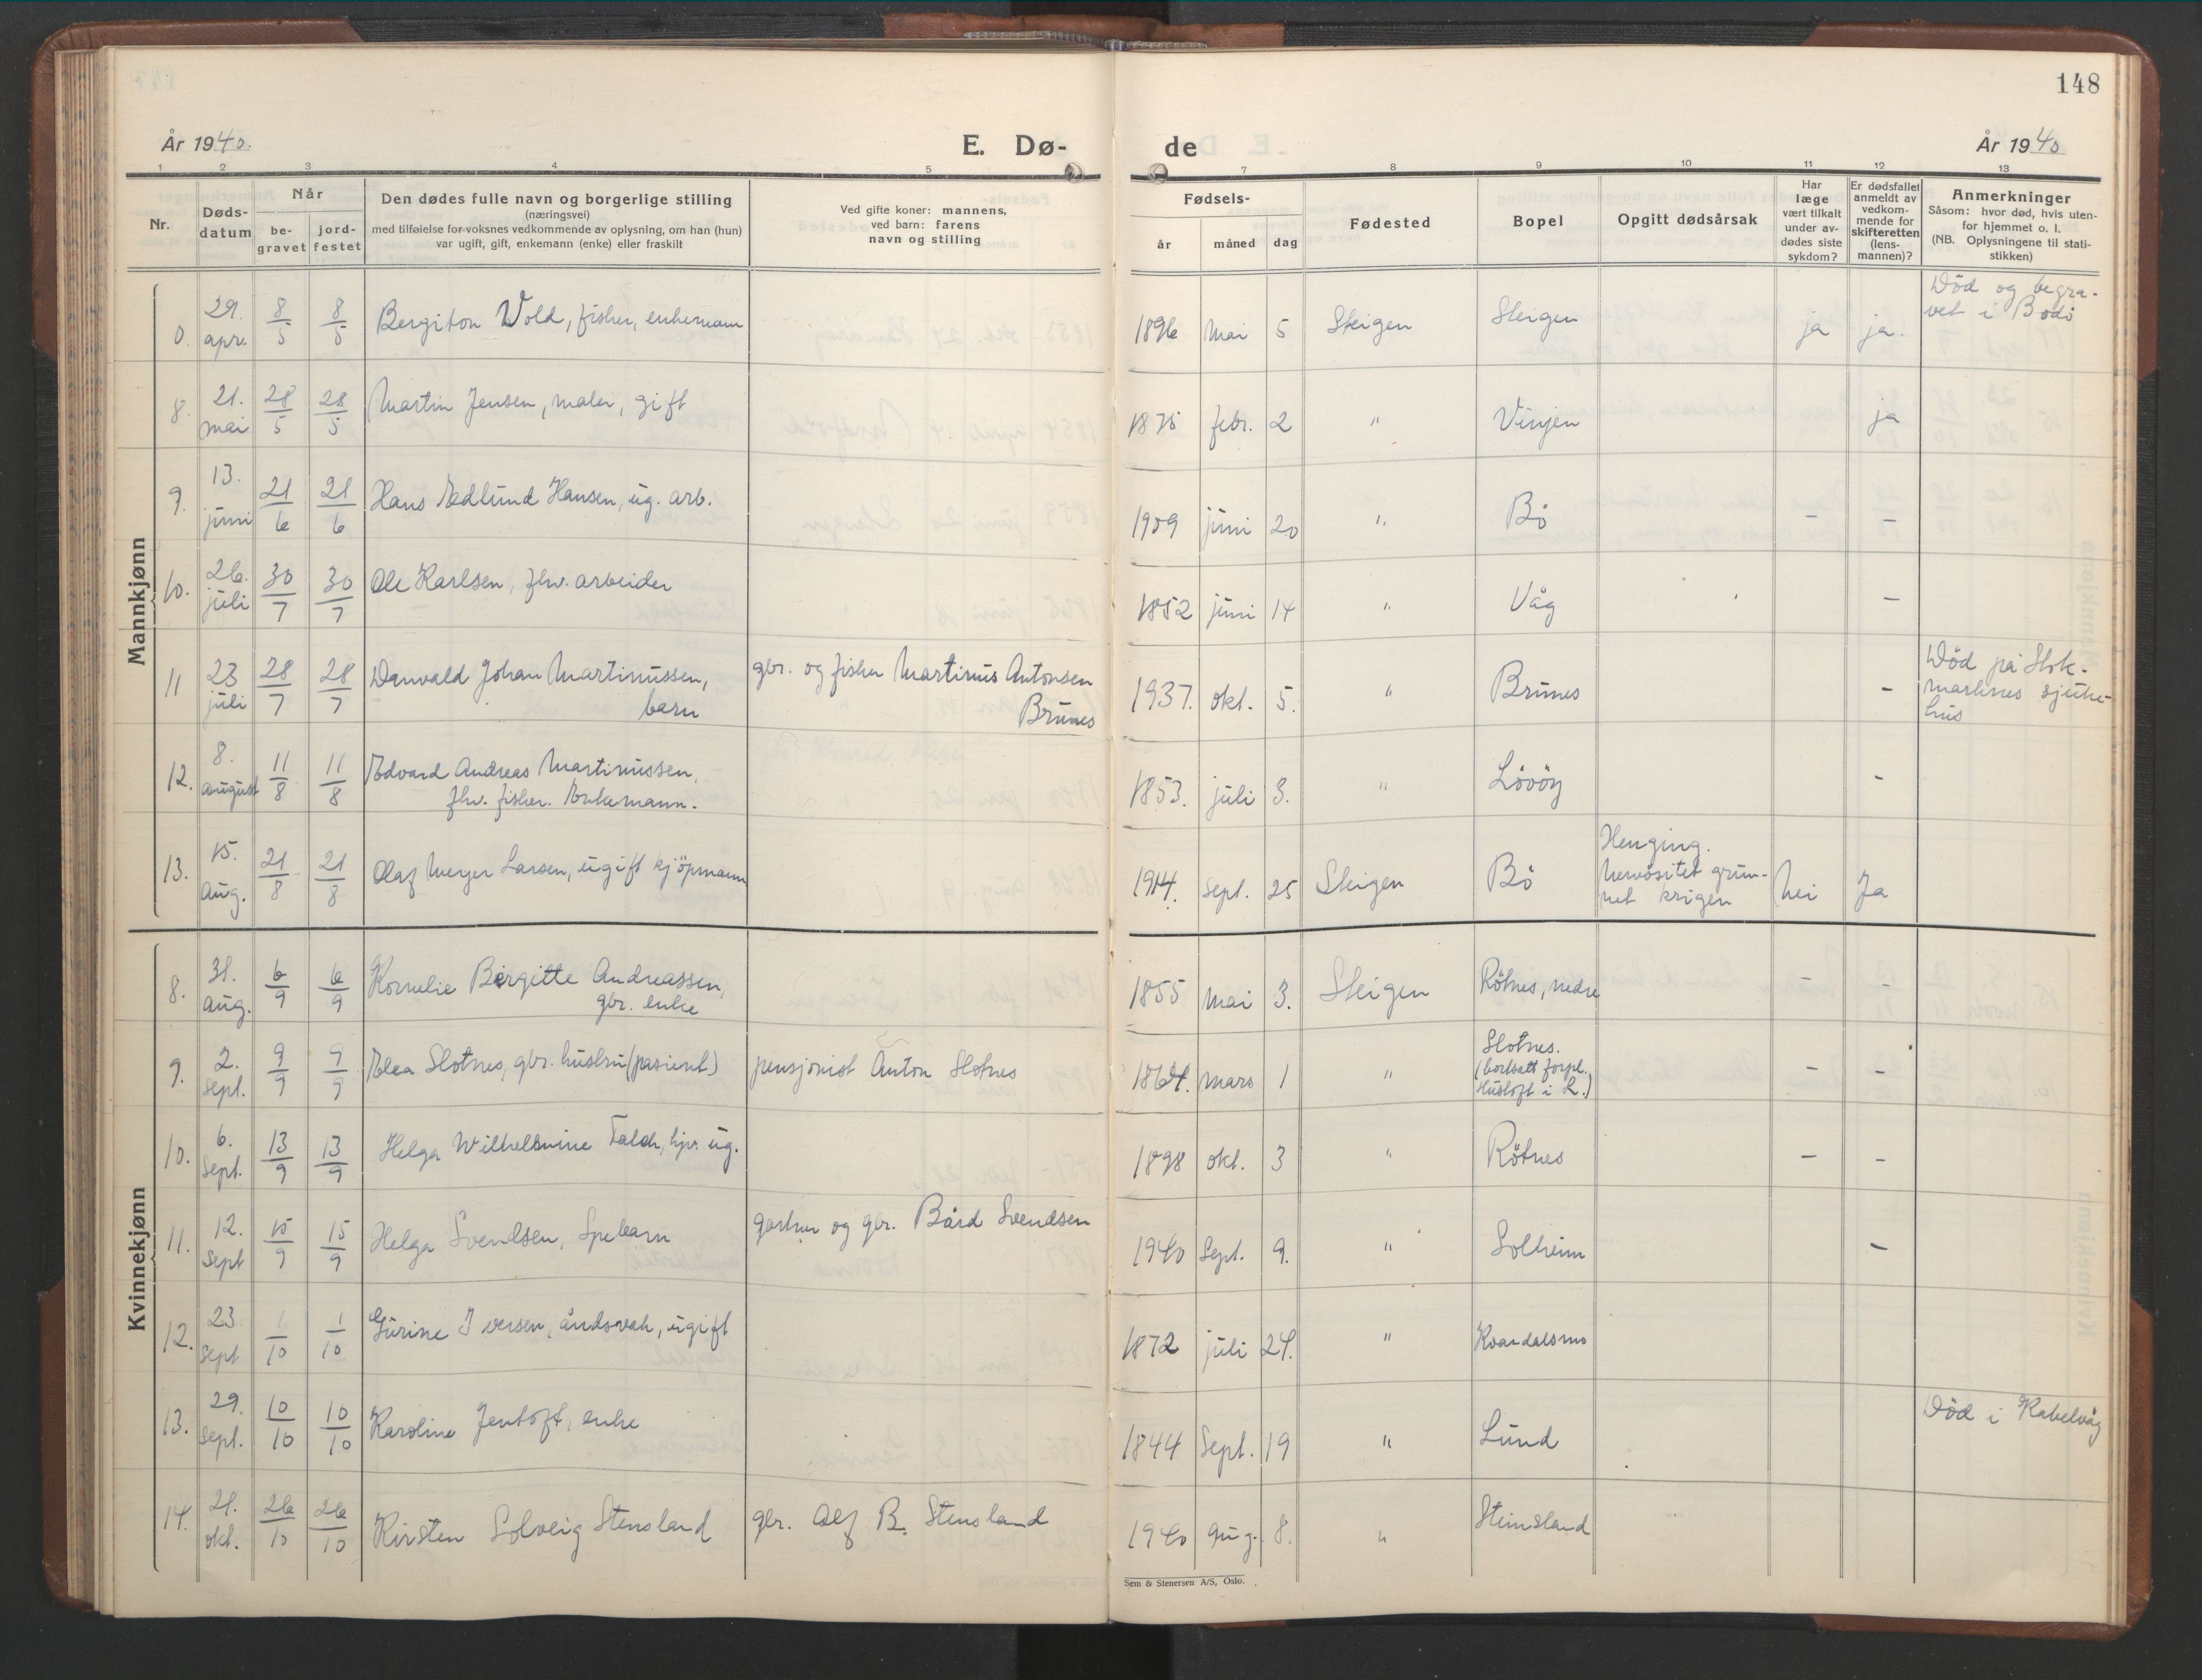 148
År 1940.
E. Dø-
de
År 1940
1 2 3 4 5 7 8 9 10 11 12 13
Nr.
Døds-
datum
Når
be-
gravet
jord-
festet
Den dødes fulle navn og borgerlige stilling
(næringsvei)
med tilføielse for voksnes vedkommende av oplysning, om han (hun)
var ugift, gift, enkemann (enke) eller fraskilt
Ved gifte koner: mannens,
ved barn: farens
navn og stilling
Fødsels-
år måned dag
Fødested
Bopel
Opgitt dødsårsak
Har
læge
vært tilkalt
under av-
dødes siste
sykdom?
Er dødsfallet
anmeldt av
vedkom-
mende for
skifteretten
(lens-
mannen)?
Anmerkninger
Såsom: hvor død, hvis uten-
for hjemmet o. l.
(NB. Oplysningene til stati-
stikken)
Mannkjønn
0. 29. apr. 8/5 8/5 Bergiton Wold, fisker, enkemann 1896 mai 5 Steigen Steigen ja ja. Död og begra-
vet i Bodö
8. 21. mai 28/5 28/5 Martin Jensen, maler, gift 1875 febr. 2 " Vinjen ja
9. 13. juni 21/6 21/6 Hans Edlund Hansen, ug. arb. 1909 juni 20 " Bö - -
10. 26. juli 30/7 30/7 Ole Karlsen, fhv. arbeider 1852 juni 14 " Våg -
11 23 juli 28/7 28/7 Danvald Johan Martinussen,
barn
gbr. og fisker Martinus Antonsen
Brunes
1937. okt. 5. " Brunes - Död på Stok-
marknes sjuke-
hus
12. 8. august 11/8 11/8 Edvard Andreas Martinussen,
fhv. fisker. Enkemann.
1853. juli 3. " Lövöy -
13. 15. aug. 21/8 21/8 Olaf Meyer Larsen, ugift kjöpmann 1914. sept. 25 Steigen Bö Henging.
Nervösitet grun-
net krigen
Nei Ja
Kvinnekjønn
8. 31. aug. 6/9 6/9 Kornelie Birgitte Andreassen,
gbr. enke
1855 mai 3. Steigen Rötnes, nedre -
9. 2. sept. 9/9 9/9 Elea Slotnes, gbr. hustru (pasient) pensjonist Anton Slotnes 1864. mars 1 " Slotnes.
(bortsatt forpl.
Husloft i L.)
- -
10. 6. sept. 13/9 13/9 Helga Wilhelmine Falch, hjv. ug. 1898 okt. 3 " Rötnes - -
11. 12. sept 15/9 15/9 Helga Svendsen, Spebarn gartner og gbr. Bård Svendsen 1940 Sept. 9. " Solheim -
12. 23 sept 1/10 1/10 Gurine Iversen, åndsvak, ugift 1872 juli 24. " Kvandalsmo
13. 29. sept. 10/10 10/10 Karoline Jentoft, enke 1844 Sept. 19 " Lund Död i Kabelvåg
14. 21. okt. 26/10 26/10 Kirsten Solveig Stensland gbr. Alf B. Stensland 1940 aug. 8. " Steinsland
Sem & Stenersen A/S, Oslo.